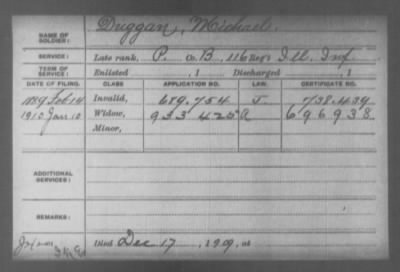 NAME OF SOLDIER: Duggan, Michael.
SERVICE: Late rank, P. Co. B, 116 Reg't Ill. Inf.
TERM OF SERVICE: Enlisted , 1 Discharged , 1
DATE OF FILING. CLASS APPLICATION NO. LAW. CERTIFICATE NO.
1889 Feb 14 Invalid, 689.754 J. 738.439
1910 Jan 10 Widow, 933 425 A 696938
Minor,
ADDITIONAL SERVICES:
REMARKS:
Died Dec 17, 1909, at